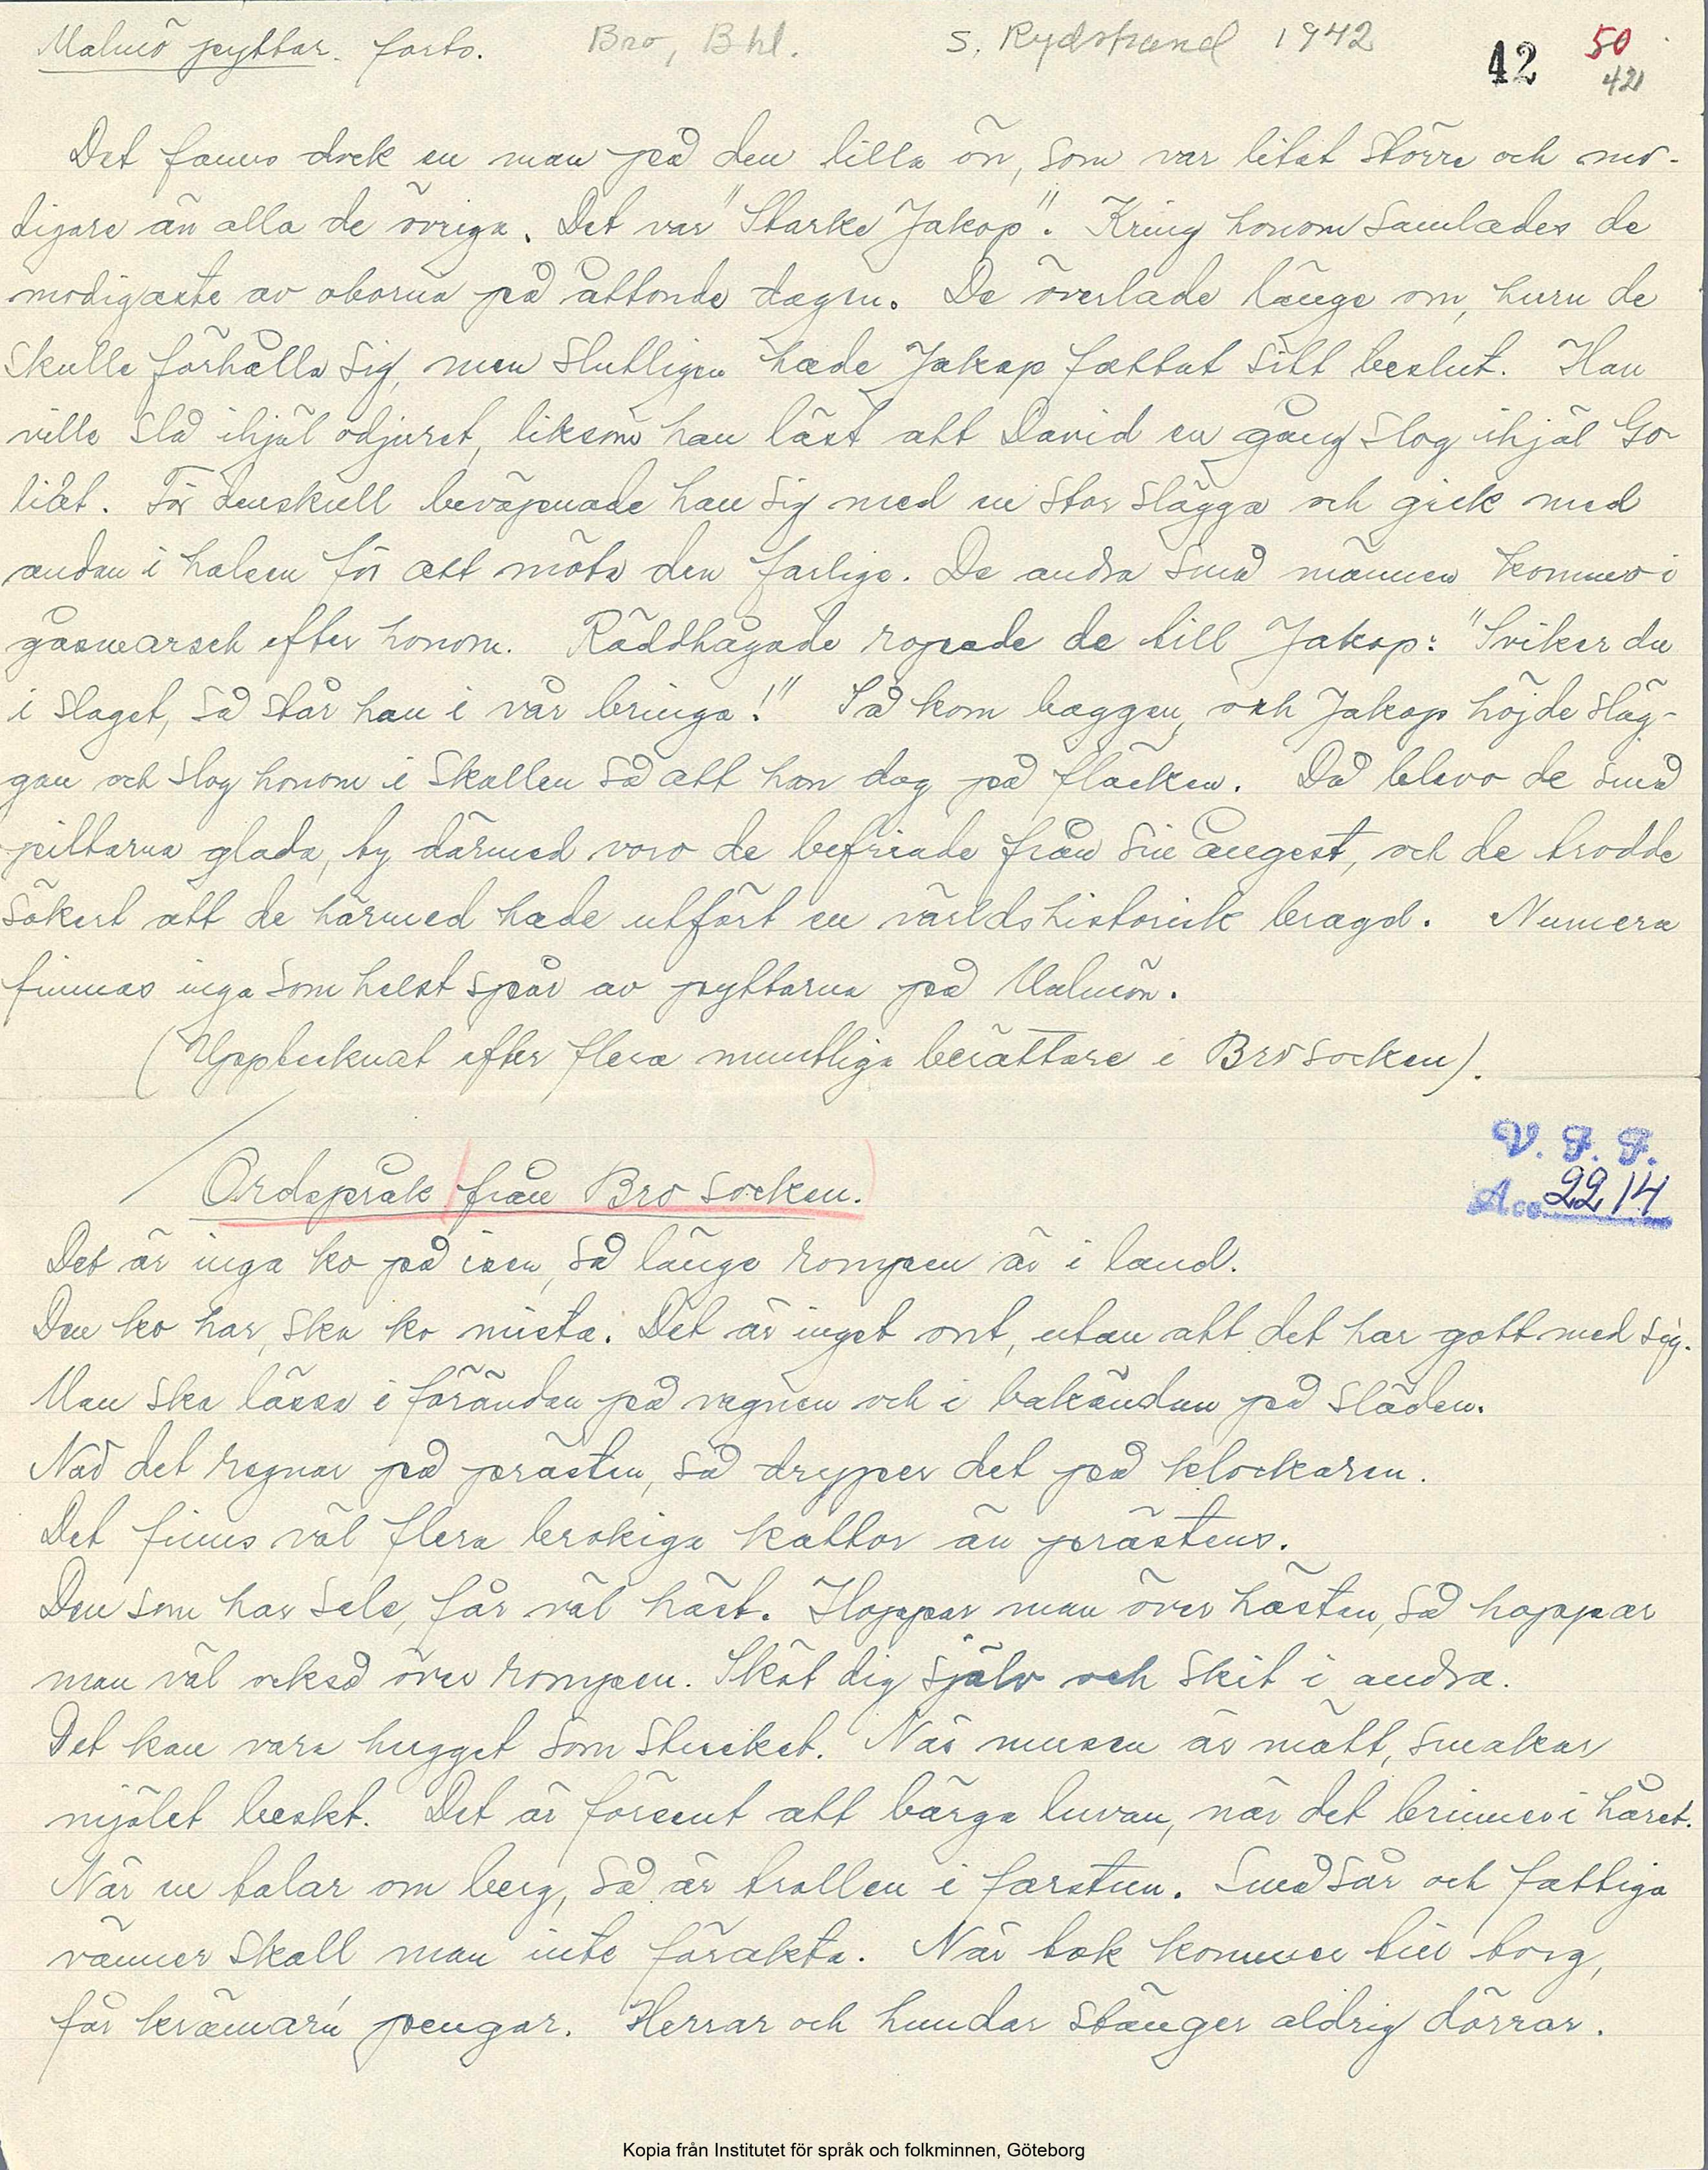 Malmö pyttar. forts. Bro, Bhl. S. Rydstrand 1942 42 50
421
Det fanns dock en man på den lilla ön, som var litet större och mo-
digare än alla de övriga. Det var "Starke Jakop". Kring honom samlades de
modigaste av öborna på åttonde dagen. De överlade länge om, huru de
skulle förhålla sig, men slutligen hade Jakop fattat sitt beslut. Han
ville slå ihjäl odjuret, liksom han läst att David en gång slog ihjäl Go-
liat. För denskull beväpnade han sig med en stor slägga och gick med
andan i halsen för att möta den farlige. De andra små männen kommo i
gåsmarsch efter honom. Räddhågade ropade de till Jakop: "Sviker du
i slaget, så står han i vår bringa!" Så kom baggen, och Jakop höjde släg-
gan och slog honom i skallen så att han dog på fläcken. Då blevo de små
pittarna glada, ty därmed voro de befriade från sin ångest, och de trodde
säkert att de härmed hade utfört en världshistorisk bragd. Numera
finnas inga som helst spår av pyttarna på Malmön.
(Upptecknat efter flera muntliga berättare i Bro socken).
V. F. F.
Ordspråk från Bro socken.
Acc. 2214
Det är inga ko på isen, så länge rompen är i land.
Den ko har, ska ko mista. Det är inget ont, utan att det har gott med sig.
Man ska lässa i förändan på vagnen och i bakändan på släden.
När det regnar på prästen, så dryper det på klockaren.
Det finns väl flera brokiga kattor än prästens.
Den som har sele, får väl häst. Hoppar man över hästen, så hoppar
man väl också över rompen. Sköt dig själv och skit i andra.
Det kan vara hugget som stucket. När musen är mätt, smakar
mjölet beskt. Det är försent att bärga luvan, när det brinner i håret.
När en talar om berg, så är trollen i farstun. Små sår och fattiga
vänner skall man inte förakta. När tok kommer till torg,
får krämarn pengar. Herrar och hundar stänger aldrig dörrar.
Kopia från Institutet för språk och folkminnen, Göteborg